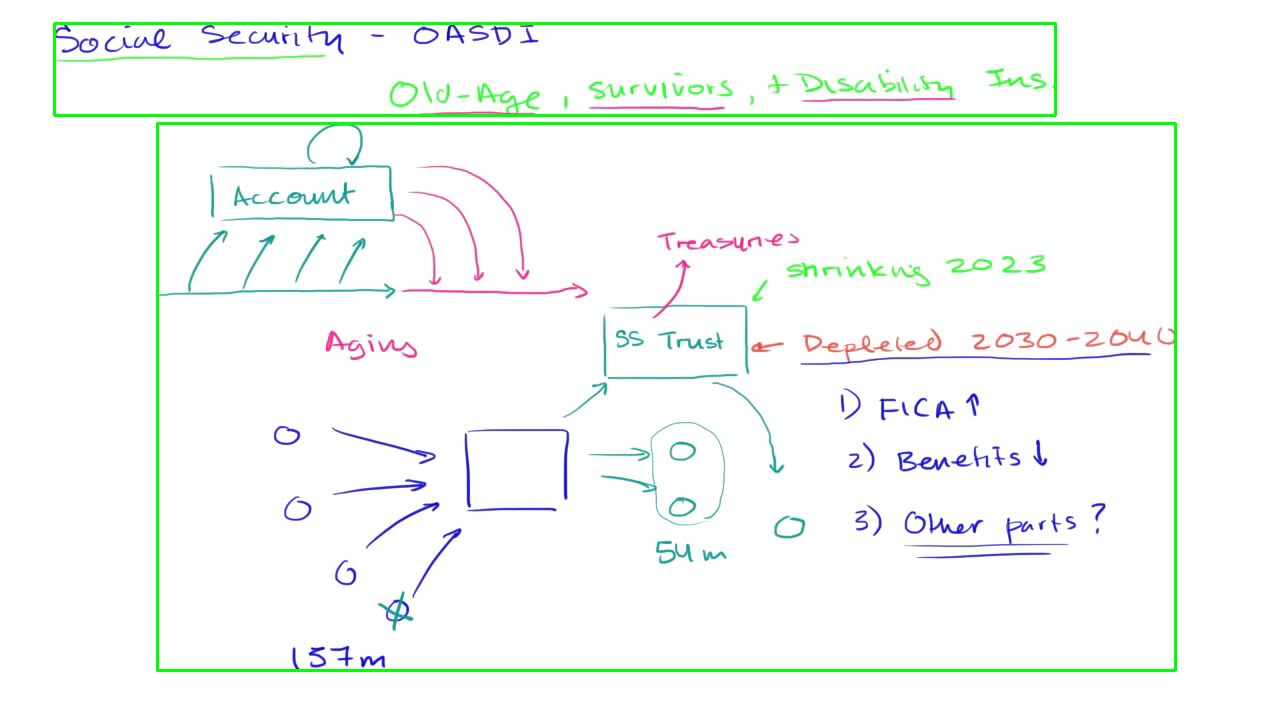 Social Security - OASDI
Old-Age, survivors, + Disability Ins.
Account
Treasuries
shrinking 2023
Aging
SS Trust
Depleted 2030-2040
1) FICA ↑
2) Benefits ↓
3) Other parts?
54m
157m